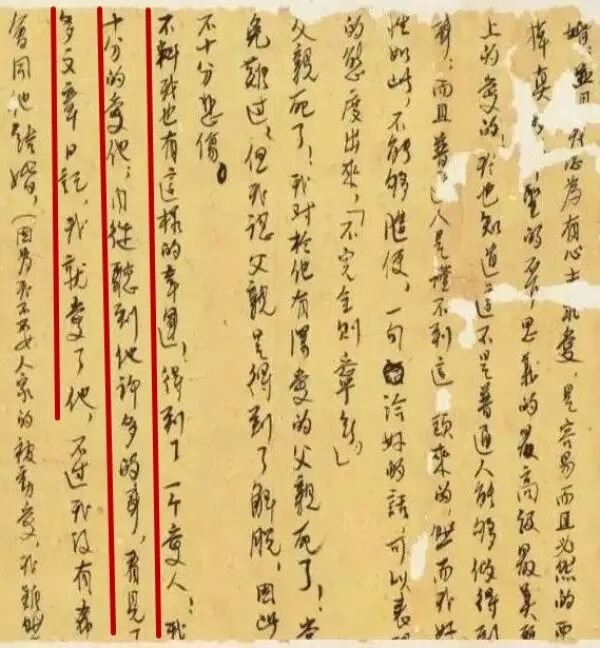 婚;並且 我認為有心去求愛,是容易而且必然的要
真 聖的 的最高級最美
上的愛的!我也知道這不是普通人能夠做得到
而且普通人是懂不到這一頭來的,然而我好
性如此,不能夠隨便,一句恰好的話,可以表現
的態度出來,「不完全則寧無」
父親死了!我對於他有深愛的父親死了!當
免難過,但我認父親是得到了解脫,因此
不十分悲傷。
不料我也有這樣的幸運!得到了一個愛人!我
十分的愛他;自從聽到他許多的事,看見了
多文章日記,我就愛了他,不過我沒有希
會同他結婚,(因為我不要人家的被動愛,我雖然